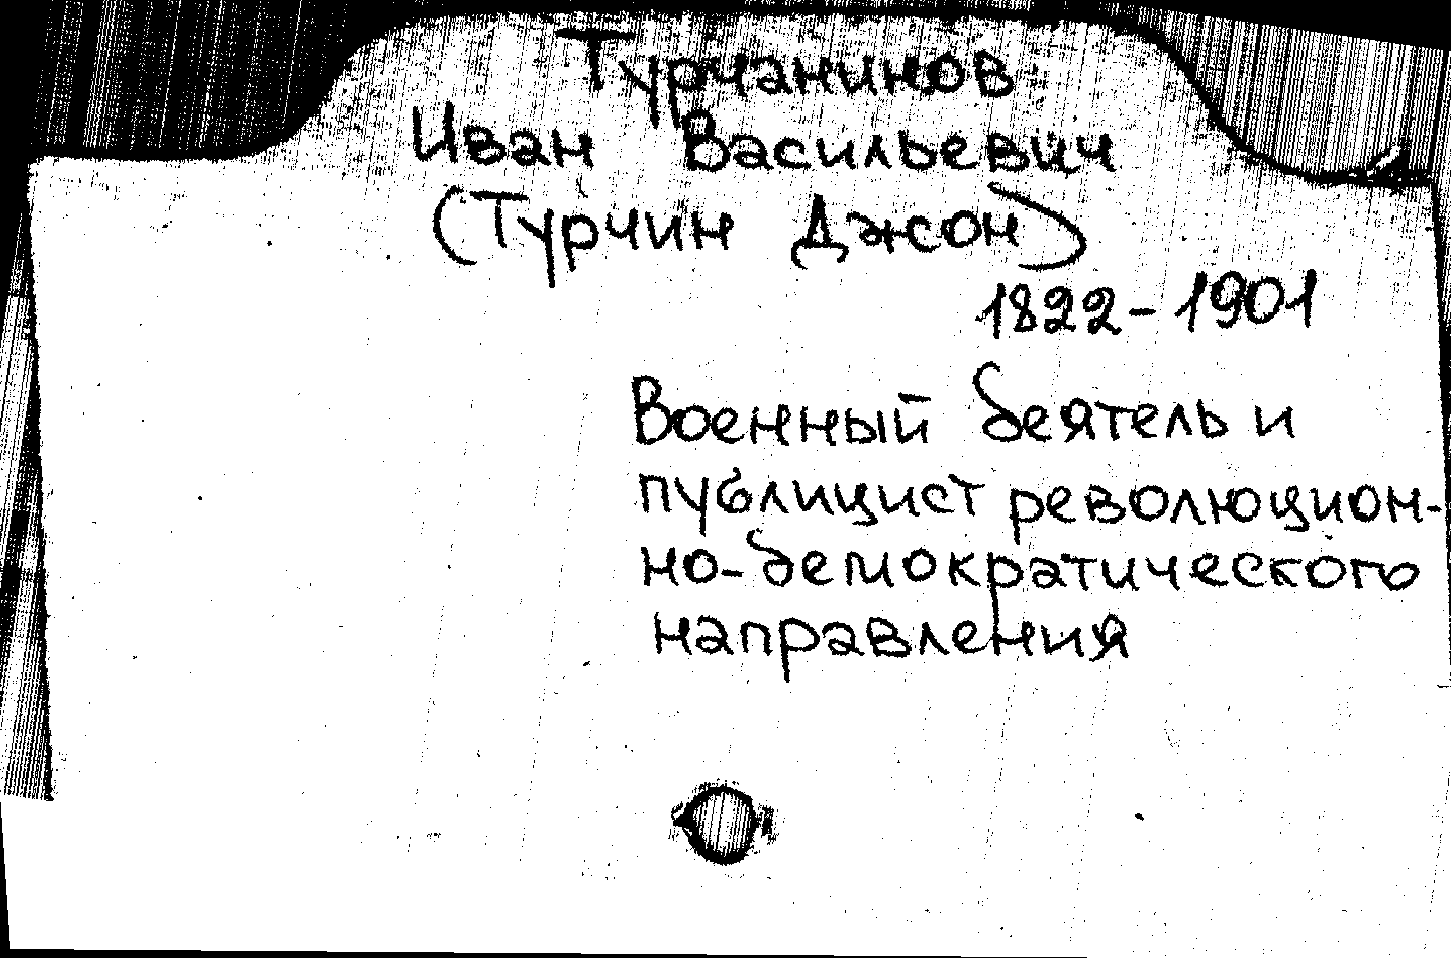 Турчанинов
Иван Васильевич
(Турчин Джон)
1822-1901
Военный деятель и
публицист революцион-
но-демократического
направления